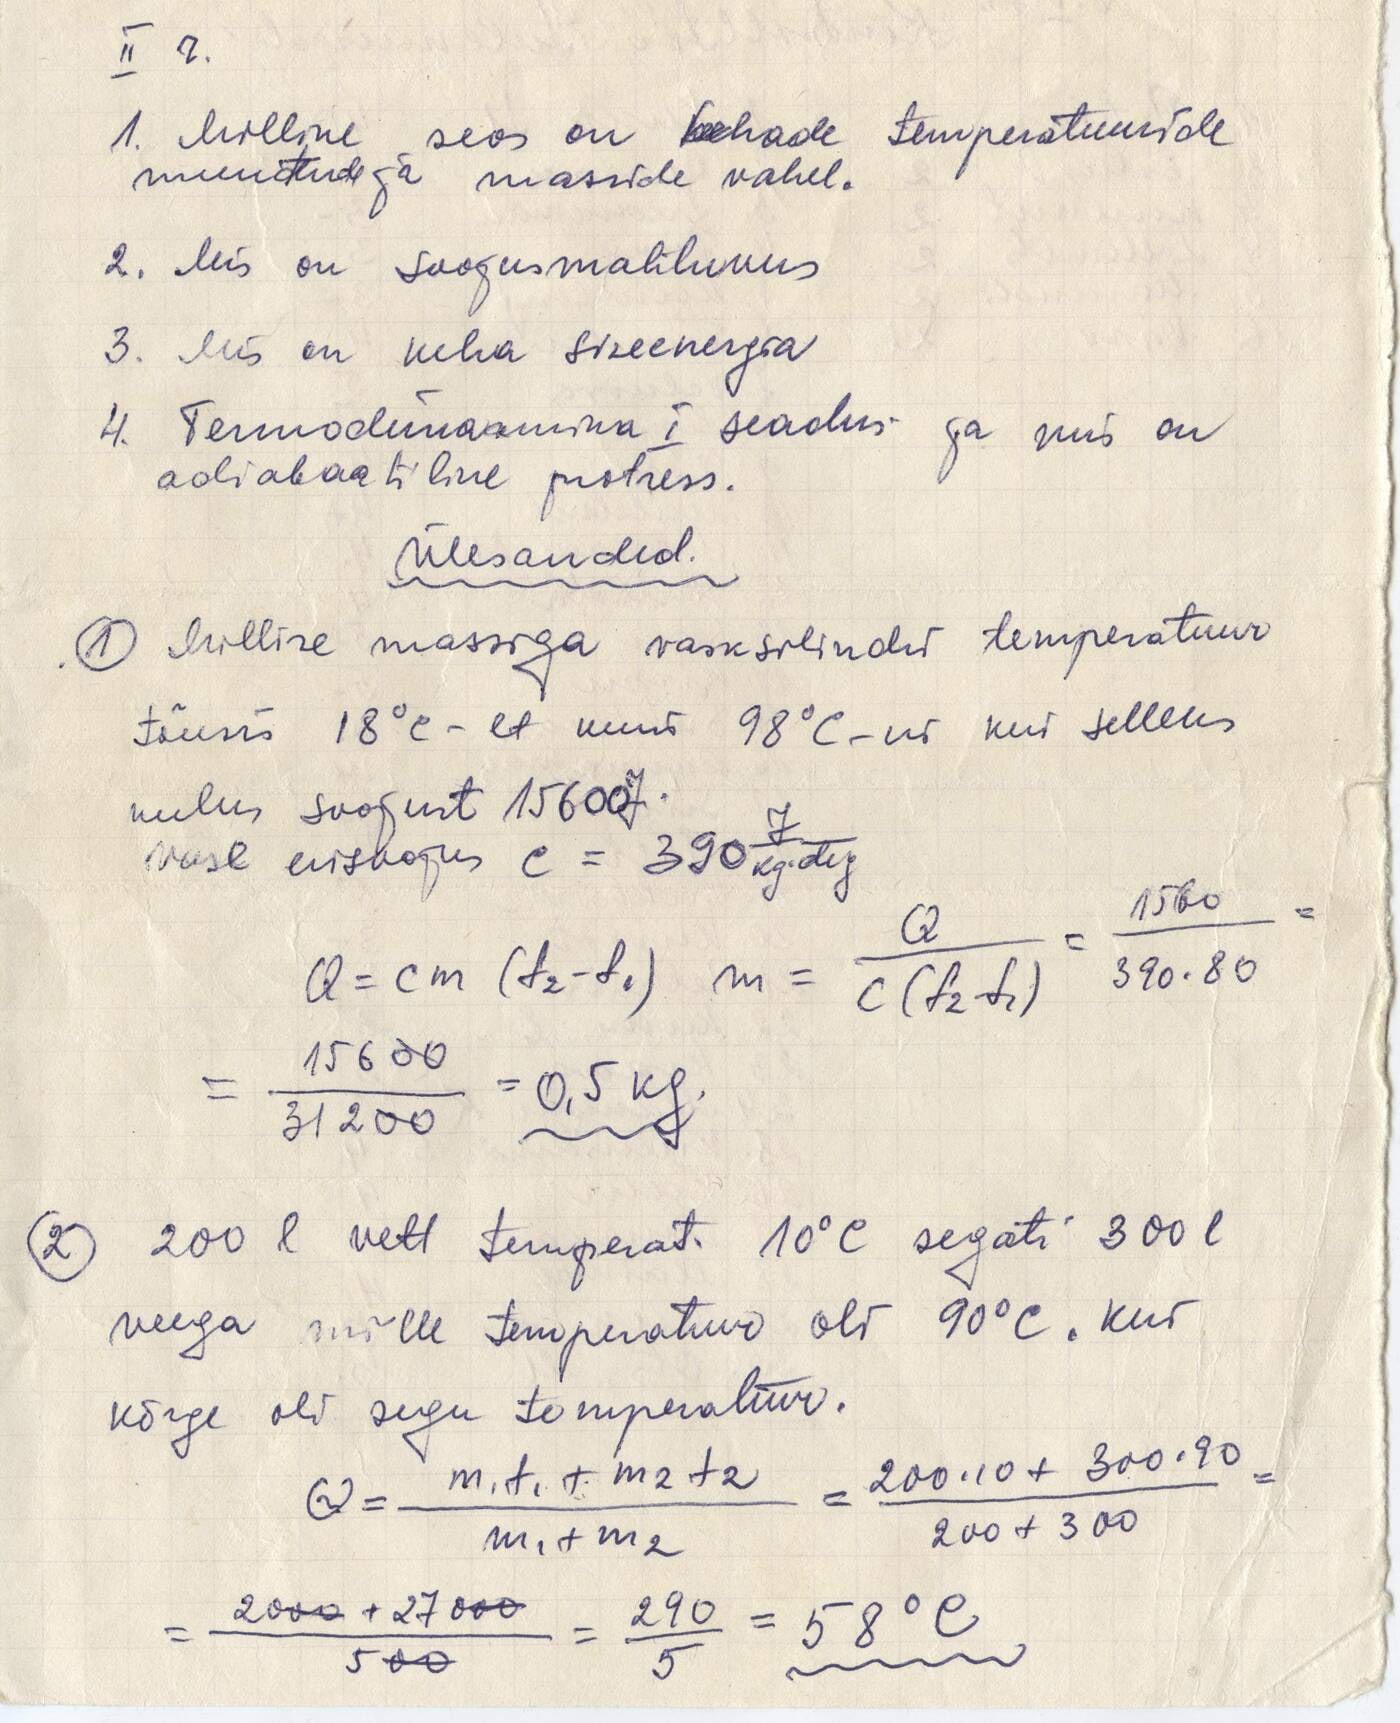 II r.
1. Milline seos on kehade temperatuuride
muutudega masside vahel.
2. Mis on soojusmahtuvus
3. Mis on keha siseenergia
4. Termodünaamika I seadus ja mis on
adiabaatiline protsess.
Ülesanded.
① Millise massiga vasksilindri temperatuur
tõusis 18°C-lt kuni 98°C-ni kui selleks
kulus soojust 15600J.
vase erisoojus c = 390 J/kg·deg
Q = cm (t₂-t₁) m = Q/c(t₂-t₁) = 1560/390·80 =
= 15600/31200 = 0,5 kg.
② 200 l vett temperat. 10°C segati 300 l
veega mille temperatuur oli 90°C. kui
kõrge oli segu temperatuur.
Q = m₁t₁ + m₂t₂/m₁ + m₂ = 200·10 + 300·90/200 + 300 =
= 2000 + 27000/500 = 290/5 = 58°C